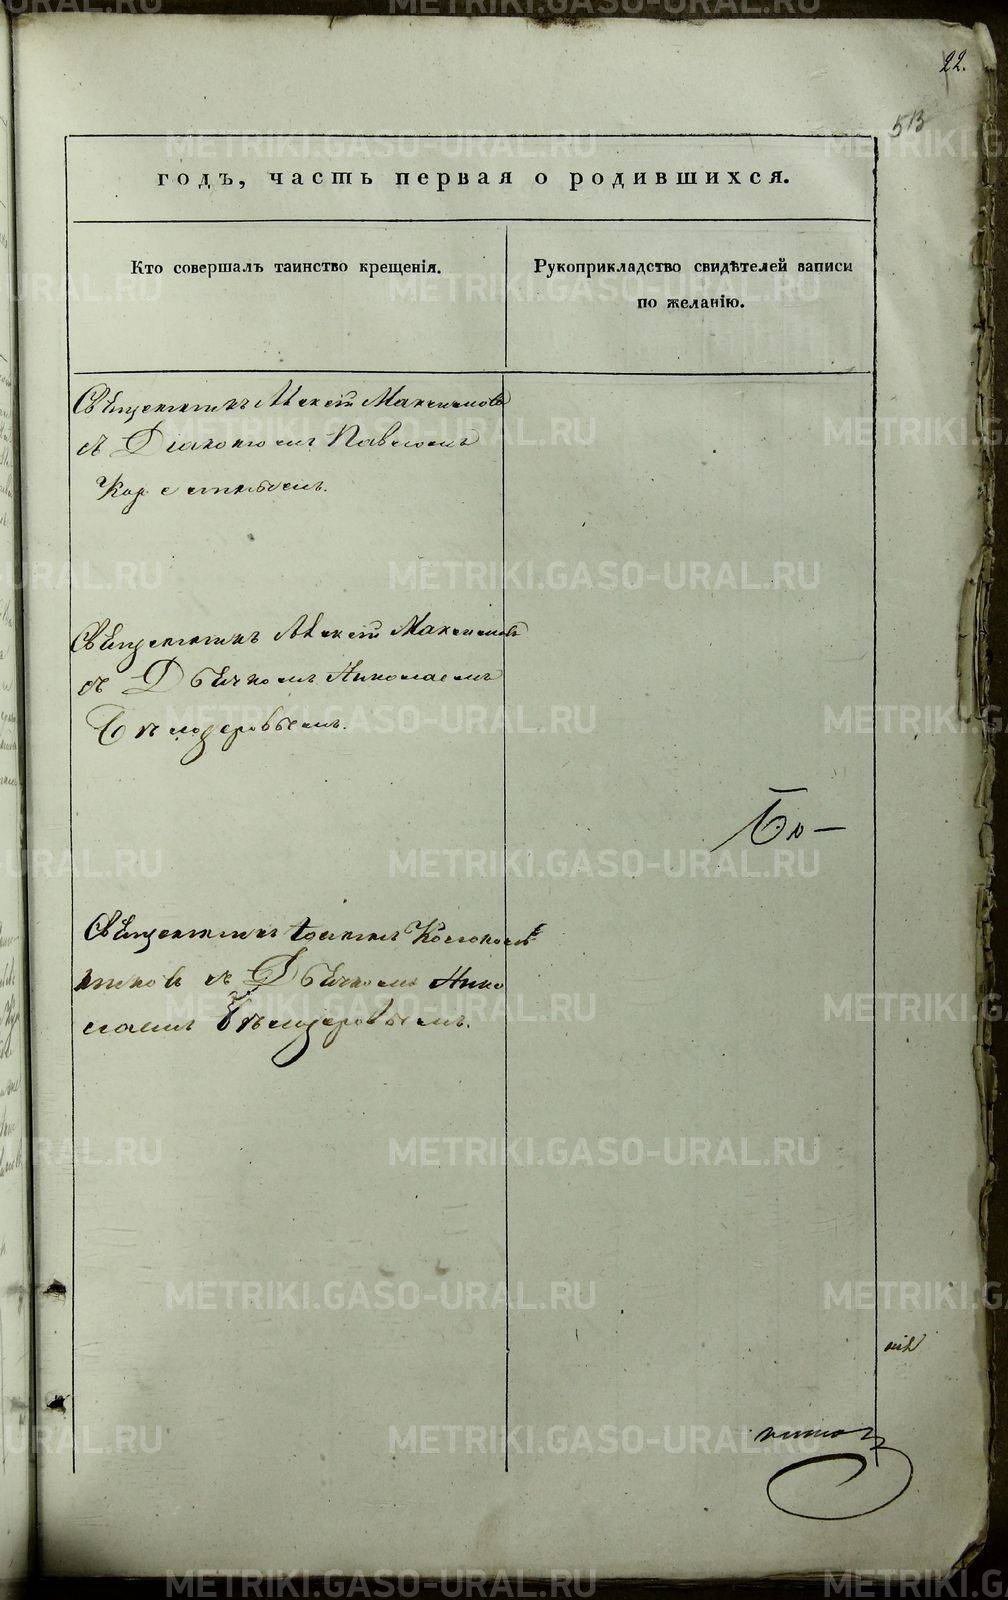 22.
513
годъ, часть первая о родившихся.
Кто совершалъ таинство крещенія.
Рукоприкладство свидѣтелей записи
по желанію.
Священникъ Алексѣй Максимовъ
съ Діакономъ Павломъ
Священникъ Алексѣй Максимовъ
съ Дьячкомъ Николаемъ
Священникъ Іоаннъ Колоколь
никовъ съ Дьячкомъ Нико
лаемъ
METRIKI.GASO-URAL.RU